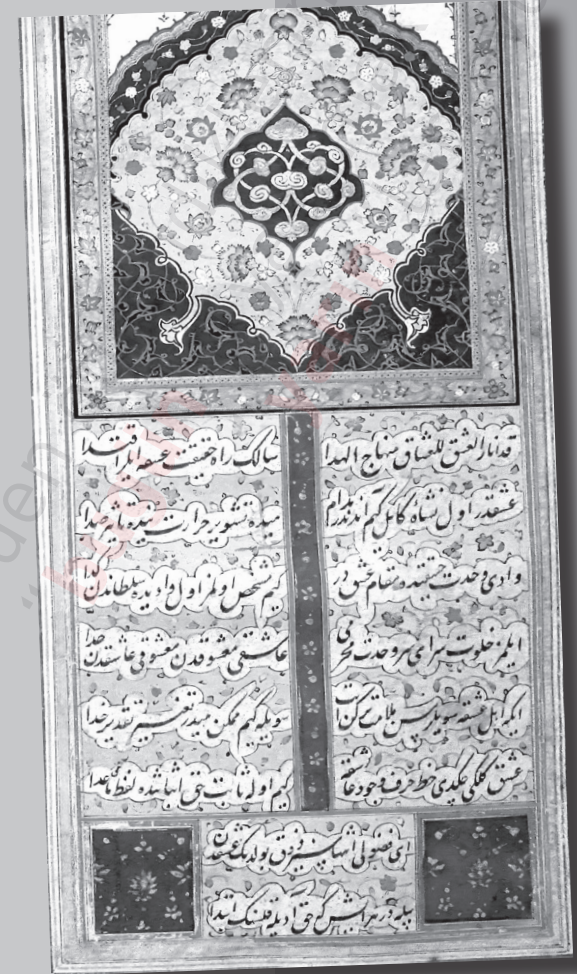 قد انار العشق للعشاق منهاج الهدا سالك راه حقيقت عشقه ايلر اقتدا
عشقدر اول نشأه كامل كيم آندندر مدام ميده تشوير حرارت نيده تأثير صدا
وادى وحدت حقيقتده مقام عشقدر كيم مشخص اولمز اول واديده سلطاندن گدا
ايلمز خلوت سراى سر وحدت محرمى عاشقى معشوقدن معشوقى عاشقدن جدا
ايكه اهل عشقه سويلرسن ملامت تركن ايت سويله كيم ممكن ميدر تغيير تقدير خدا
عشق كلكى چكدى خط حرف وجود عاشقه كيم اوله ثابت حق اثباتنده ماعدا
اى فضولى انتهاسز ذوق بولدك عشقدن
بيله در هر ايش كه حق آديله قلسك ابتدا